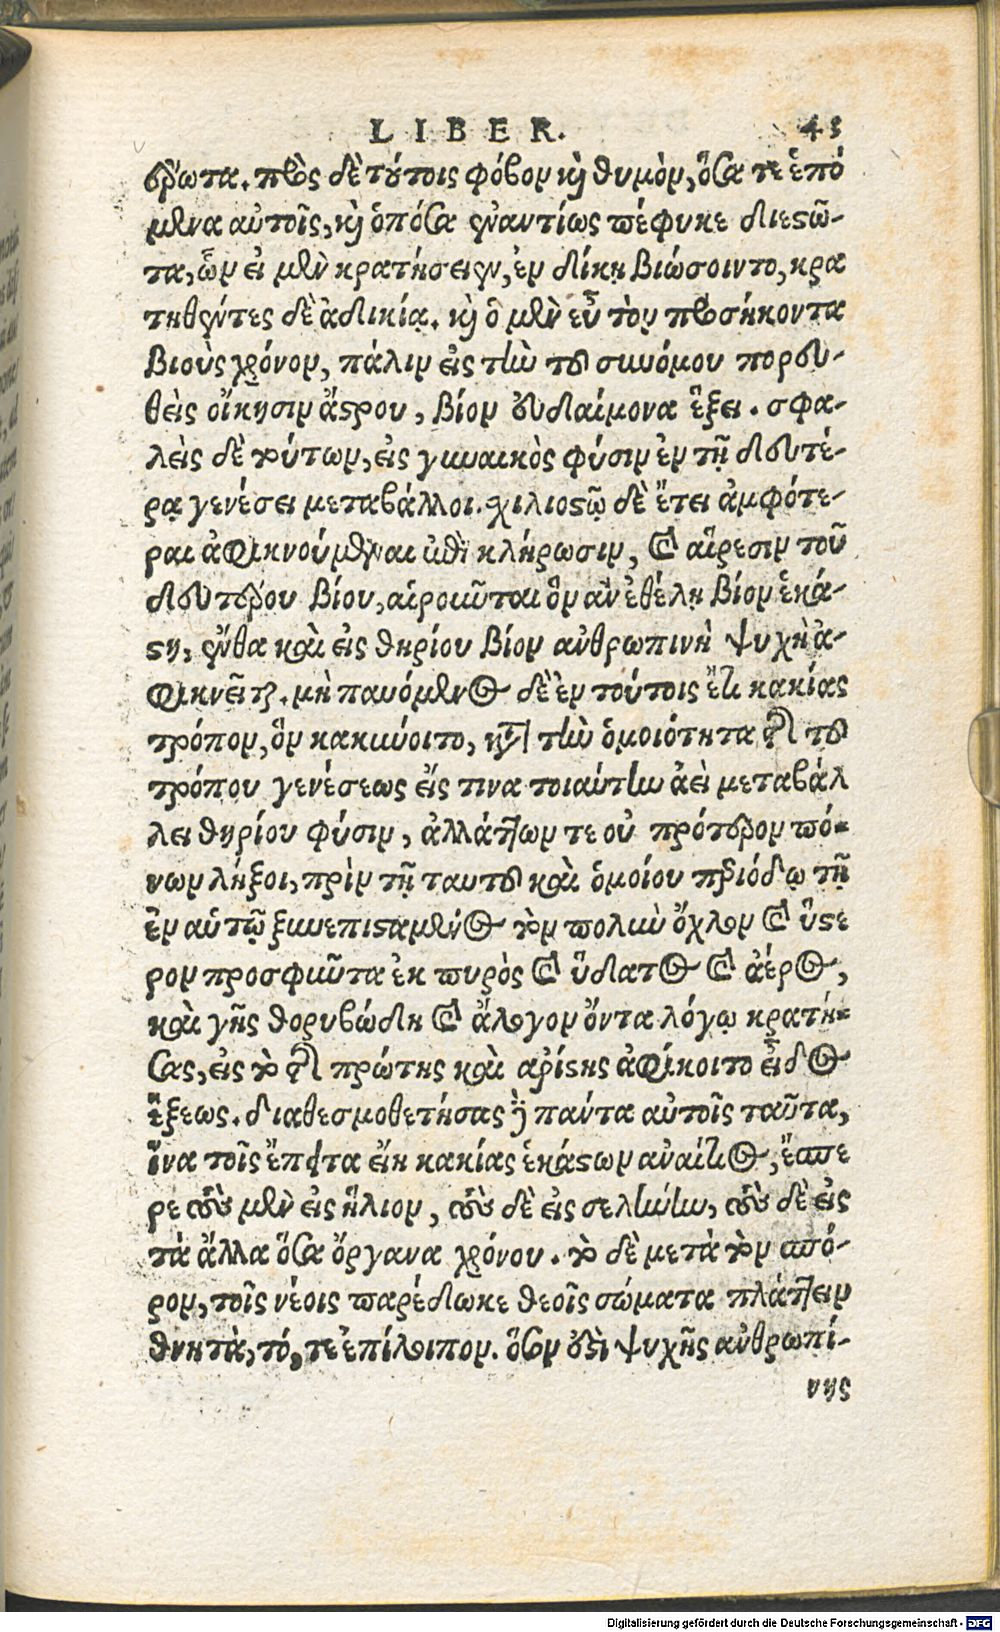 LIBER. 43
ἔρωτα. πρὸς δὲ τούτοις φόβον καὶ θυμὸν, ὅσα τε ἑπό
μενα αὐτοῖς, καὶ ὁπόσα ἐναντίως πέφυκε διεστῶ-
τα, ὧν εἰ μὲν κρατήσειεν, ἐν δίκῃ βιώσοιντο, κρα
τηθέντες δὲ ἀδικίᾳ. καὶ ὁ μὲν εὖ τὸν προσήκοντα
βιοὺς χρόνον, πάλιν εἰς τὴν τοῦ συνόμου πορευ-
θεὶς οἴκησιν ἄστρου, βίον εὐδαίμονα ἕξει. σφα-
λεὶς δὲ τούτων, εἰς γυναικὸς φύσιν ἐν τῇ δευτέ-
ρᾳ γενέσει μεταβάλλοι. χιλιοστῷ δὲ ἔτει ἀμφότε-
ραι ἀφικνούμεναι ἐπὶ κλήρωσιν, καὶ αἵρεσιν τοῦ
δευτέρου βίου, αἱροῦνται ὃν ἂν ἐθέλῃ βίον ἑκά-
στη, ἔνθα καὶ εἰς θηρίου βίον ἀνθρωπινὴ ψυχὴ ἀ-
φικνεῖται. μὴ παυόμενος δὲ ἐν τούτοις ἔτι κακίας
τρόπον, ὃν κακύνοιτο, κατὰ τὴν ὁμοιότητα τῆς τοῦ
τρόπου γενέσεως εἴς τινα τοιαύτην ἀεὶ μεταβάλ
λει θηρίου φύσιν, ἀλλάττων τε οὐ πρότερον πό-
νων λήξοι, πρὶν τῇ ταυτοῦ καὶ ὁμοίου περιόδῳ τῇ
ἐν αὑτῷ ξυνεπισπαμενος τὸν πολὺν ὄχλον καὶ ὕστε
ρον προσφύντα ἐκ πυρὸς καὶ ὕδατος καὶ ἀέρος,
καὶ γῆς θορυβώδη καὶ ἄλογον ὄντα λόγῳ κρατή-
σας, εἰς τὸ τῆς πρώτης καὶ ἀρίστης ἀφίκοιτο εἶδος
ἕξεως. διαθεσμοθετήσας δὲ πάντα αὐτοῖς ταῦτα,
ἵνα τοῖς ἔπειτα εἴη κακίας ἑκάστων ἀναίτιος, ἔσπε
ρε τοὺς μὲν εἰς ἥλιον, τοὺς δὲ εἰς σελήνην, τοὺς δὲ εἰς
τὰ ἄλλα ὅσα ὄργανα χρόνου. τὸ δὲ μετὰ τὸν σπό-
ρον, τοῖς νέοις παρέδωκε θεοῖς σώματα πλάττειν
θνητὰ, τό, τε ἐπίλοιπον. ὅσον ἔτι ψυχῆς ἀνθρωπί-
νης
Digitalisierung gefördert durch die Deutsche Forschungsgemeinschaft - DFG